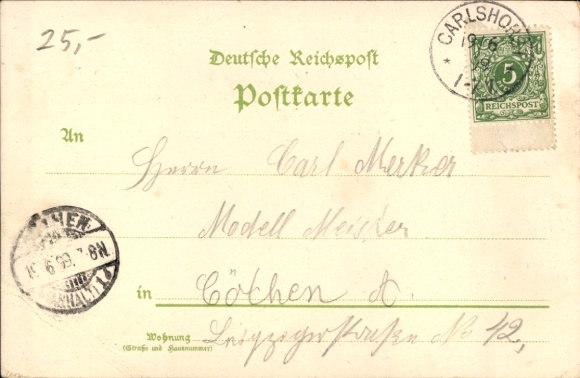 25,-
CARLSHORST
19/6
5
REICHSPOST
Deutsche Reichspost
Postkarte
An
Herrn Carl Merker
Modell Meister
in Cöthen A.
Wohnung
(Straße und Hausnummer)
Leipzigerstraße No 42,
19.6.99. 7-8N.
(ANHALT)